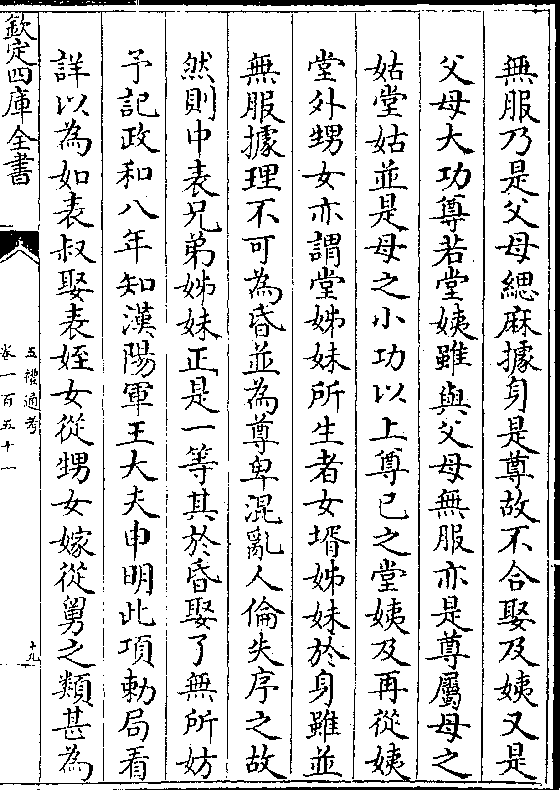 無服乃是父母緦麻據身是尊故不合娶及姨又是
父母大功尊若堂姨雖與父母無服亦是尊屬母之
姑堂姑並是母之小功以上尊已之堂姨及再從姨
堂外甥女亦謂堂姊妹所生者女壻姊妹於身雖並
無服據理不可為昏並為尊卑混亂人倫失序之故
然則中表兄弟姊妹正是一等其於昏娶了無所妨
予記政和八年知漢陽軍王大夫申明此項勅局看
詳以為如表叔娶表姪女從甥女嫁從舅之類甚為
欽定四庫全書
五禮通考
卷一百五十一
十九